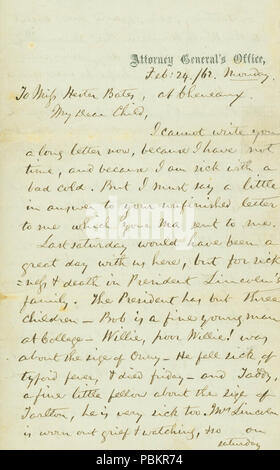 Attorney General's Office,
Feb: 24. /62. Monday.
To Miss Hester Bates, at Cheneaux.
My Dear Child,
I cannot write you
a long letter now, because I have not
time, and because I am sick with a
bad cold. But I must say a little
in answer to your unfinished letter
to me which your Ma sent to me.
Last saturday would have been a
great day with us here, but for sick
=ness & death in President Lincoln's
family. The President has but three
children — Bob is a fine young man
at College — Willie, poor Willie! was
about the size of Oney — He fell sick of
tyfoid fever, & died friday — and Taddy,
a fine little fellow about the size of
Tarlton, he is very sick too. Mrs Lincoln
is worn out grief & watching, so on
saturday
alamy
Image ID: PBKR74
www.alamy.com